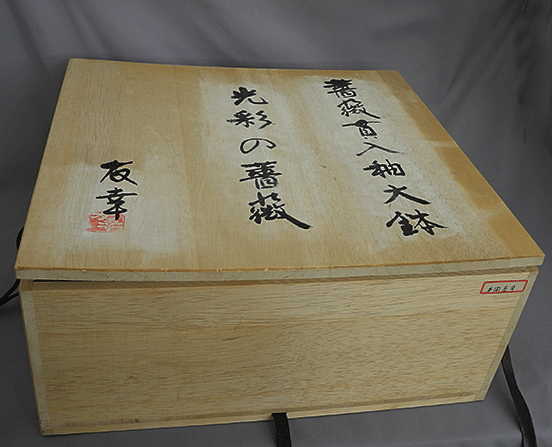 薔薇貫入釉大鉢
光彩の薔薇
友幸